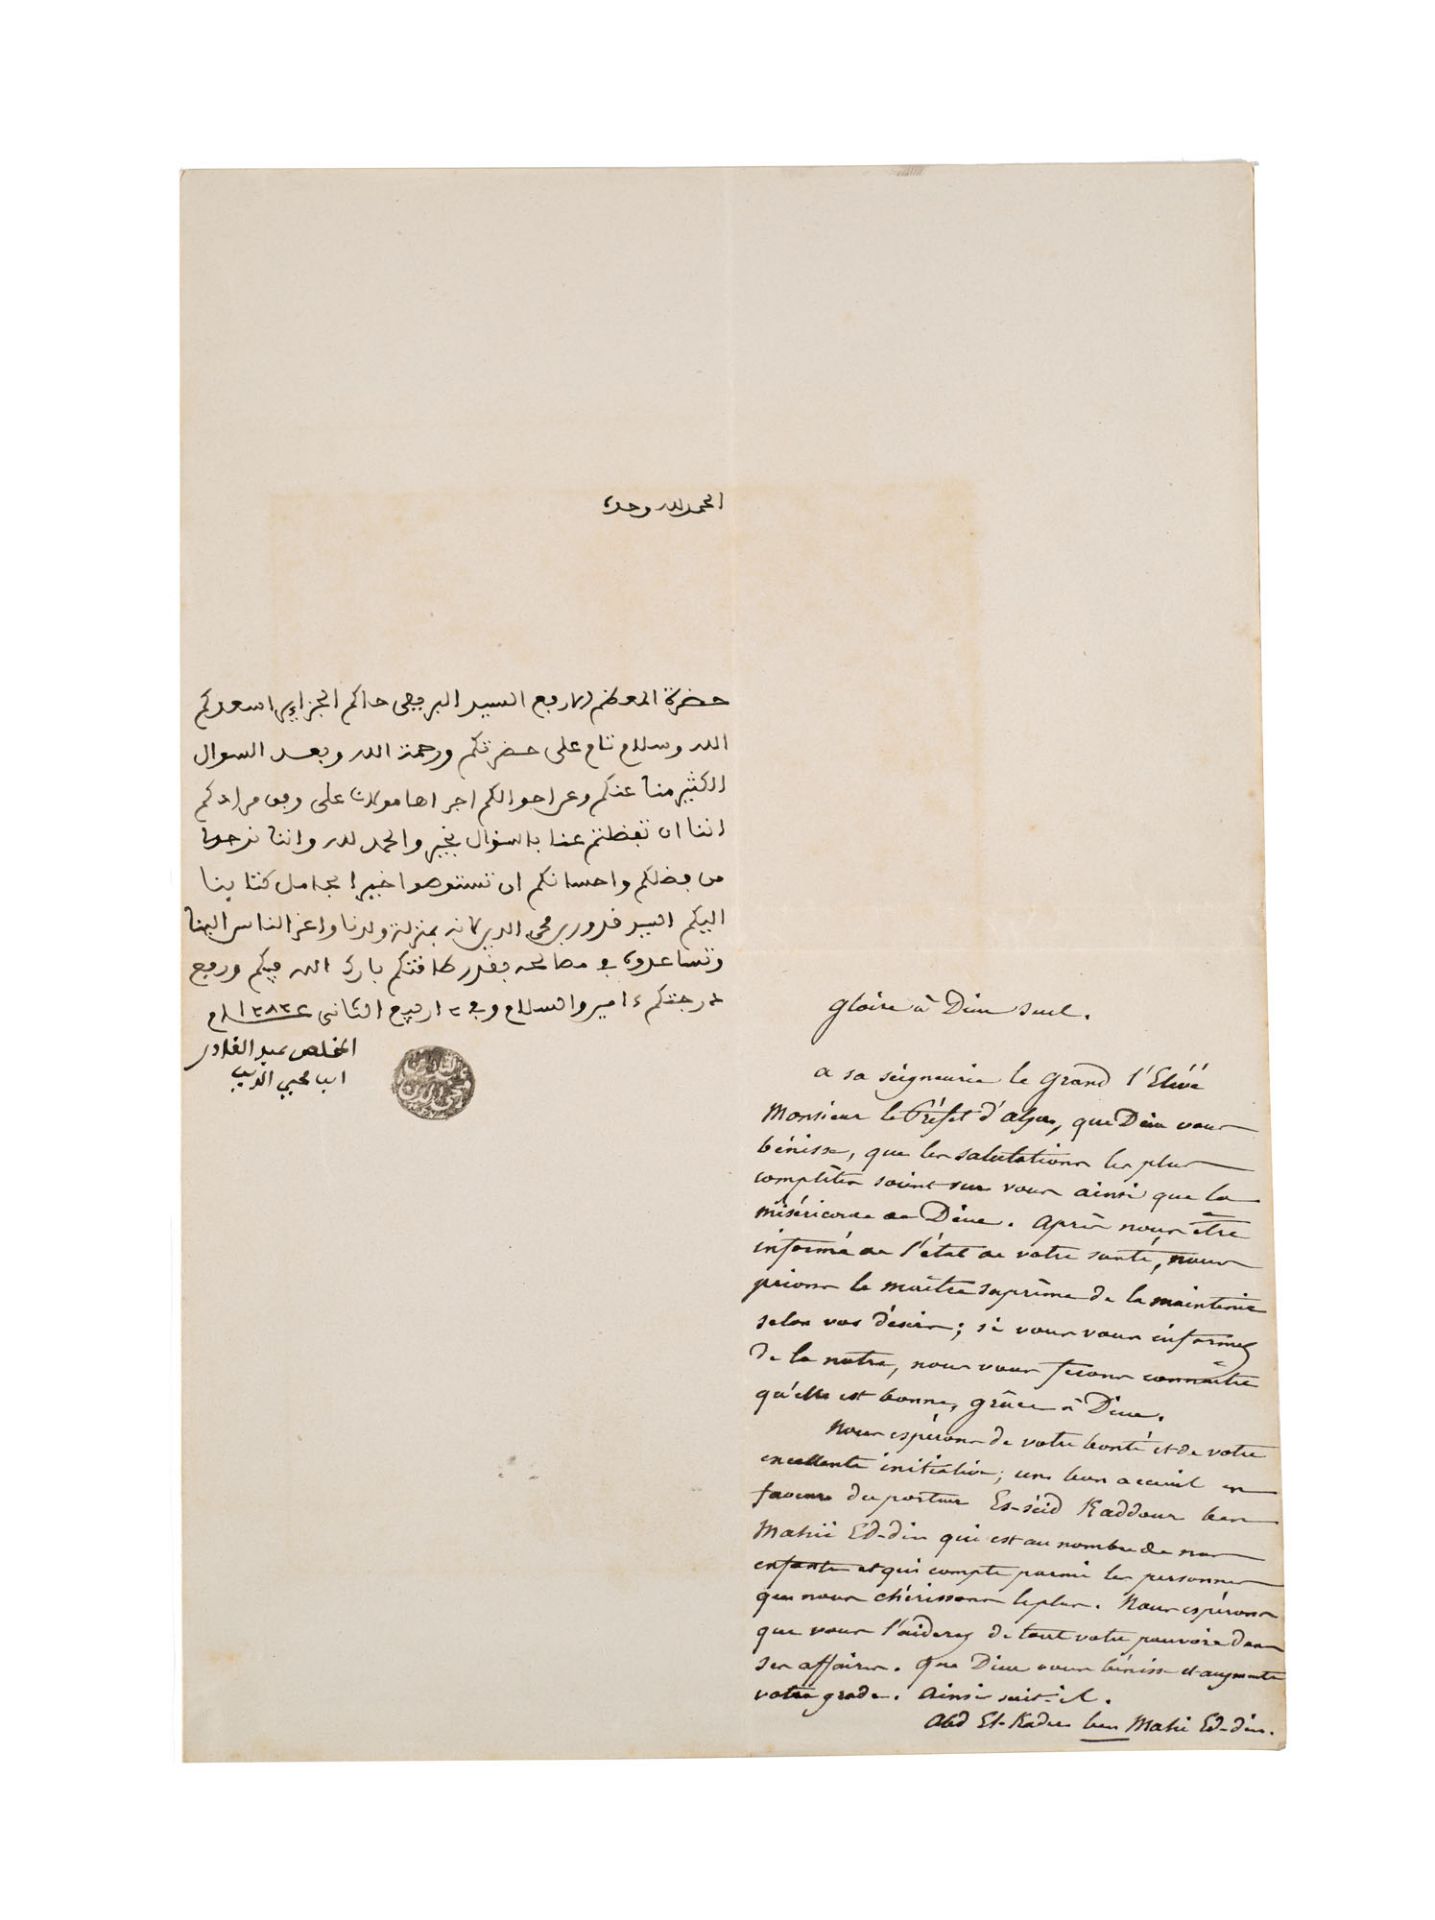 الحمد لله وحده
حضرة المعظم الارفع السيد البريفي حاكم الجزاير اسعدكم
الله وسلام تام على حضرتكم ورحمة الله وبعد السوال
الكثير منا عنكم وعن احوالكم اجراها مولانا على وفق مرادكم
اننا ان تفظلتم عنا بالسوال بخير والحمد لله واننا نرجوا
من فضلكم واحسانكم ان تستوصوا خيرا بحامل كتابنا
اليكم السيد قدور بن محي الدين لانه بمنزلة ولدنا واعز الناس الينا
وتساعدوه في مصالحه بقدر طاقتكم بارك الله فيكم ورفع
درجتكم ءامين والسلام وفي ربيع الثاني
المخلص عبد القادر
ابن محيي الدين
Gloire à Dieu seul.
a sa seigneurie le Grand l'Elévé
Monsieur le Préfet d'alger, que Dieu vous
bénisse, que les salutations les plus
complètes soient sur vous ainsi que la
miséricorde de Dieu. après nous être
informé de l'état de votre santé, nous
prions le maître suprême de la maintenir
selon vos désirs; si vous vous informez
de la notre, nous vous ferons connaître
qu'elle est bonne, grâce à Dieu.
Nous espérons de votre bonté et de votre
excellente initiative; un bon accueil en
faveur du porteur Es-séïd Kaddour ben
Mahii Ed-din qui est au nombre de nos
enfants et qui compte parmi les personnes
que nous chérissons le plus. Nous espérons
que vous l'aiderez de tout votre pouvoir dans
ses affaires. que Dieu vous bénisse et augmente
votre grade. ainsi soit-il.
Abd El-Kader ben Mahi Ed-din.